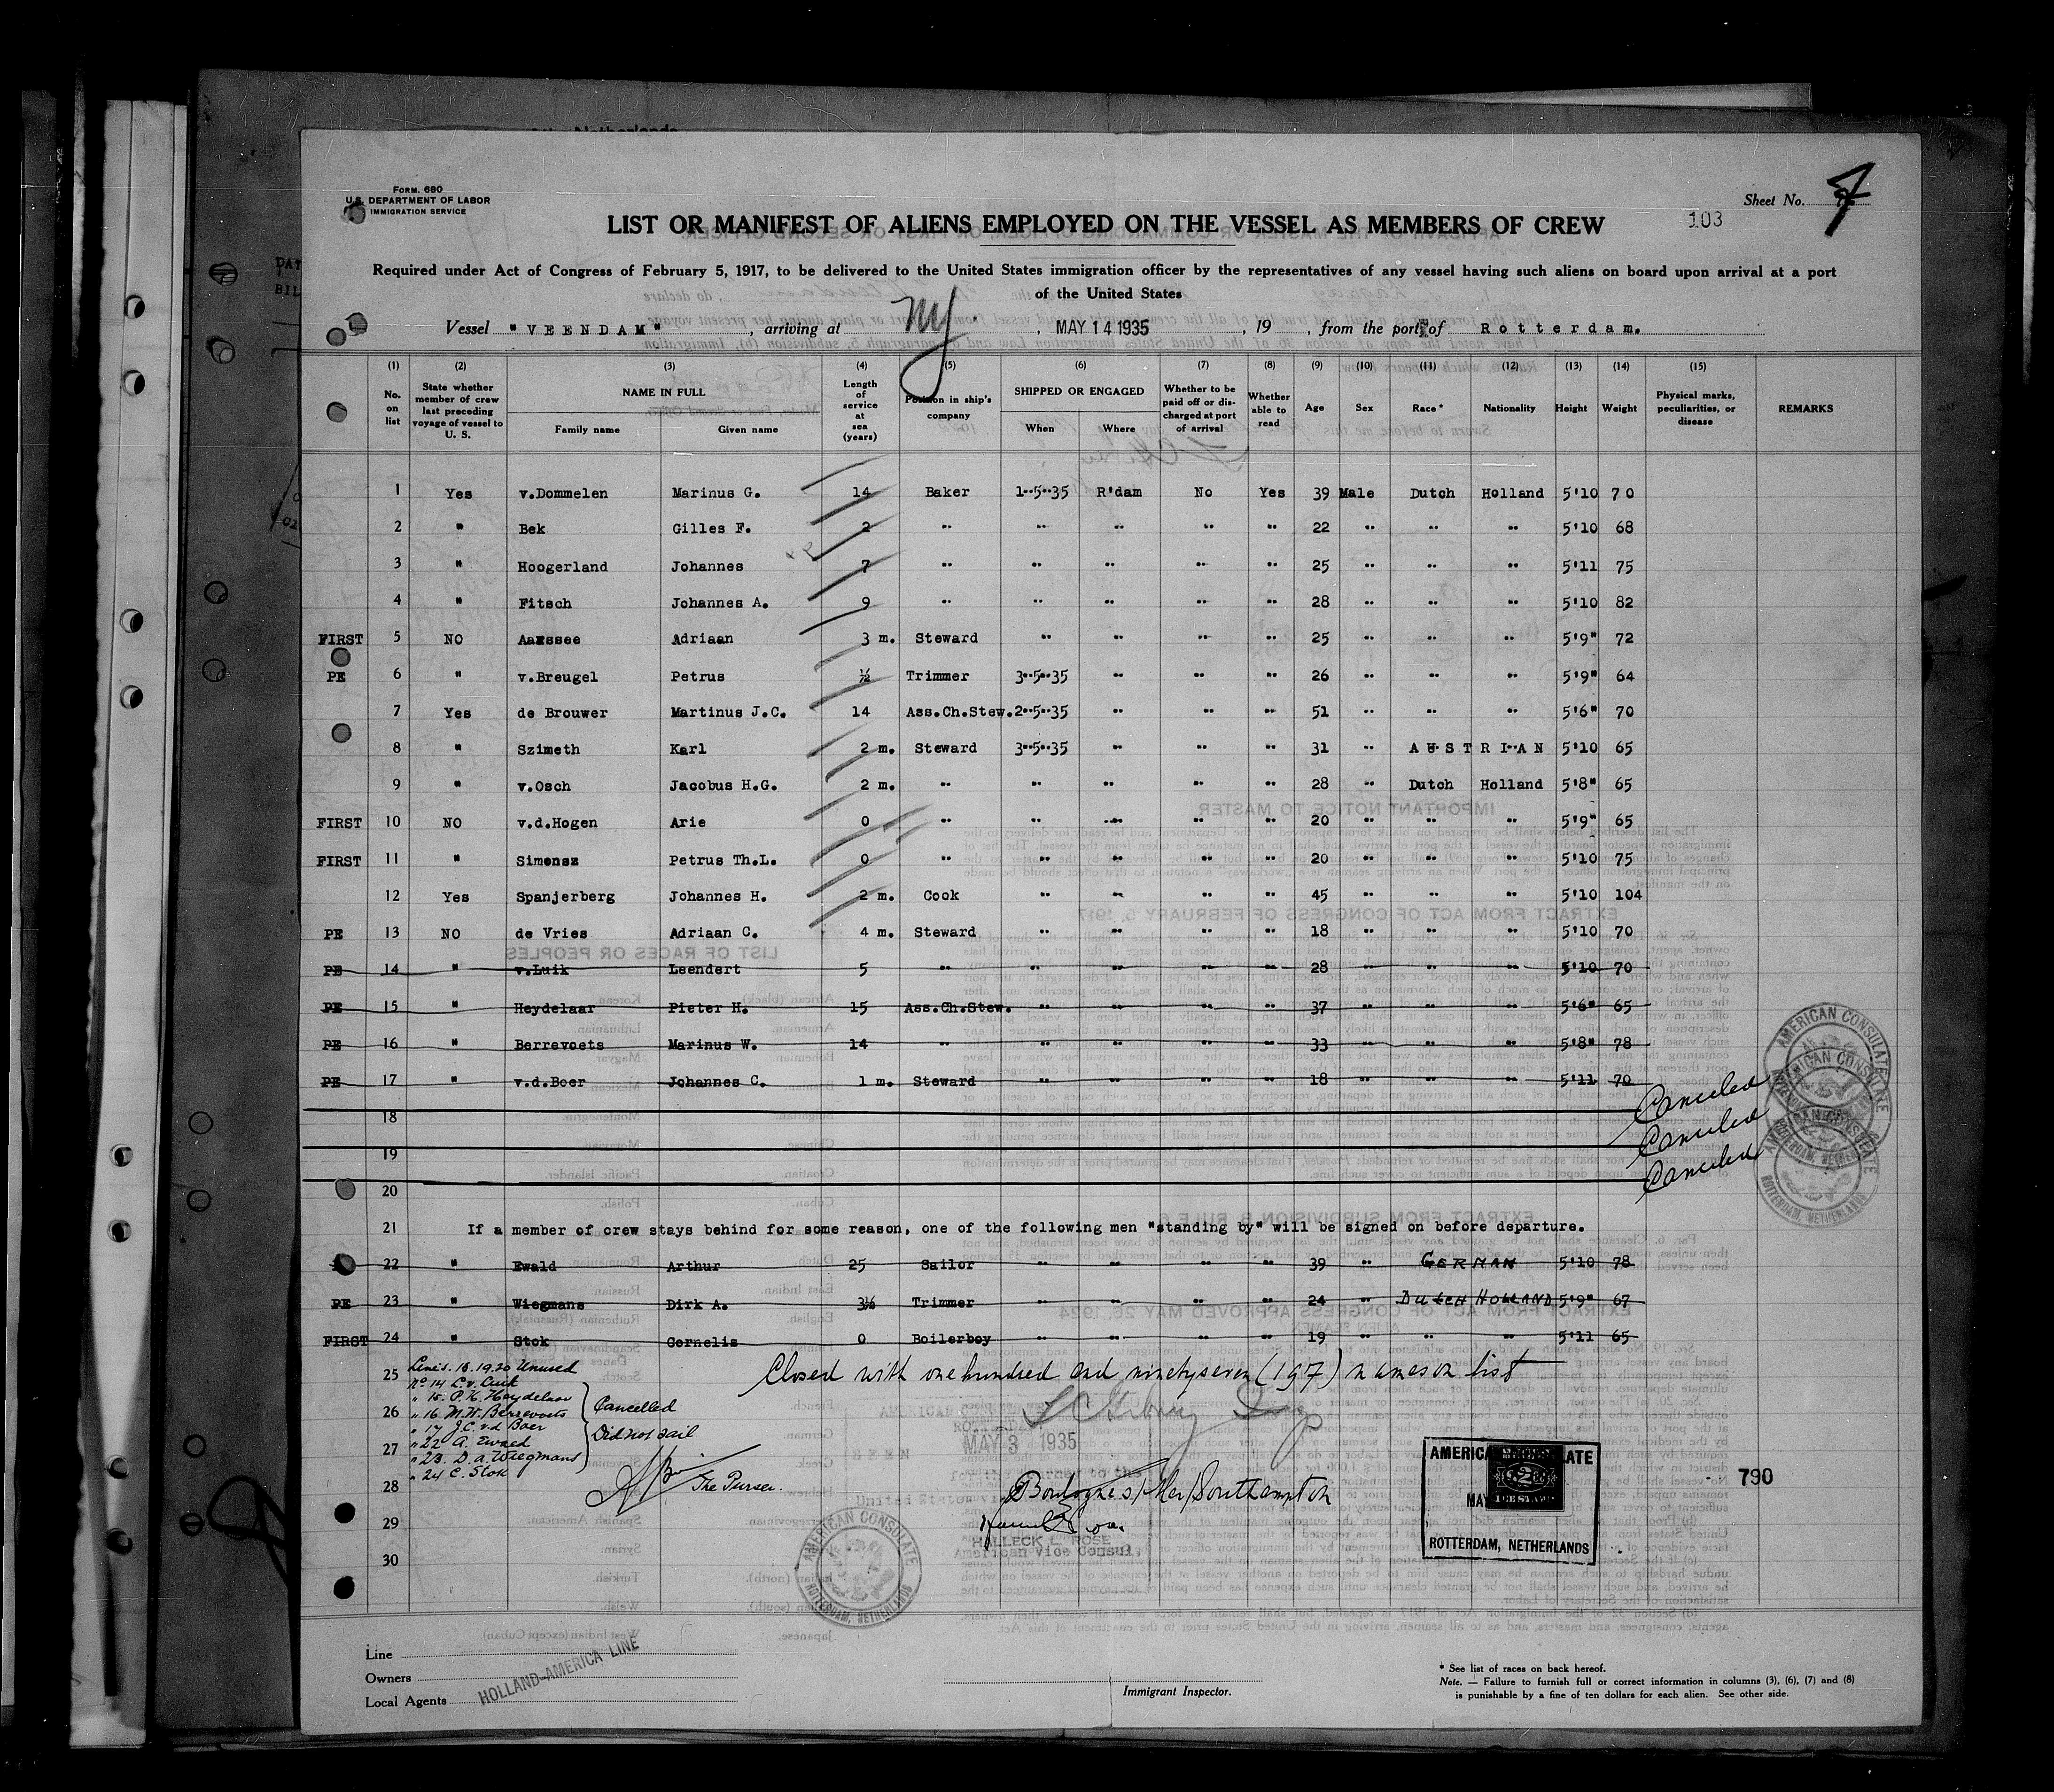 FORM. 680
U.S. DEPARTMENT OF LABOR
IMMIGRATION SERVICE
Sheet No. 7
103
LIST OR MANIFEST OF ALIENS EMPLOYED ON THE VESSEL AS MEMBERS OF CREW
Required under Act of Congress of February 5, 1917, to be delivered to the United States immigration officer by the representatives of any vessel having such aliens on board upon arrival at a port
of the United States
Vessel "VEENDAM", arriving at NY., MAY 14 1935, 19 , from the port of Rotterdam.
(1) (2) (3) (4) (5) (6) (7) (8) (9) (10) (11) (12) (13) (14) (15)
No. on list State whether member of crew last preceding voyage of vessel to U. S. NAME IN FULL Family name Given name Length of service at sea (years) Position in ship's company SHIPPED OR ENGAGED When Where Whether to be paid off or discharged at port of arrival Whether able to read Age Sex Race* Nationality Height Weight Physical marks, peculiarities, or disease REMARKS
1 Yes v.Dommelen Marinus G. 14 Baker 1-5-35 R'dam No Yes 39 Male Dutch Holland 5'10 70
2 " Bek Gilles F. 2 " " " " " 22 " " " 5'10 68
3 " Hoogerland Johannes 7 " " " " " 25 " " " 5'11 75
4 " Fitsch Johannes A. 9 " " " " " 28 " " " 5'10 82
FIRST 5 NO Aarssee Adriaan 3 m. Steward " " " " 25 " " " 5'9" 72
PE 6 " v.Breugel Petrus ½ Trimmer 3-5-35 " " " 26 " " " 5'9" 64
7 Yes de Brouwer Martinus J.C. 14 Ass.Ch.Stew. 2-5-35 " " " 51 " " " 5'6" 70
8 " Szimeth Karl 2 m. Steward 3-5-35 " " " 31 " AUSTRIAN 5'10 65
9 " v.Osch Jacobus H.G. 2 m. " " " " " 28 " Dutch Holland 5'8" 65
FIRST 10 NO v.d.Hogen Arie 0 " " " " " 20 " " " 5'9" 65
FIRST 11 " Simonsz Petrus Th.L. 0 " " " " " 20 " " " 5'10 75
12 Yes Spanjerberg Johannes H. 2 m. Cook " " " " 45 " " " 5'10 104
PE 13 NO de Vries Adriaan C. 4 m. Steward " " " " 18 " " " 5'10 70
PE 14 " v.Luik Leendert 5 " " " " " 28 " " " 5'10 70
PE 15 " Heydelaar Pieter H. 15 Ass.Ch.Stew. " " " " 37 " " " 5'6" 65
PE 16 " Berrevoets Marinus W. 14 " " " " " 33 " " " 5'8" 78
PE 17 " v.d.Boer Johannes C. 1 m. Steward " " " " 18 " " " 5'11 70
18 Canceled
19 Canceled
20 Canceled
21 If a member of crew stays behind for some reason, one of the following men "standing by" will be signed on before departure.
22 " Ewald Arthur 25 Sailor " " " " 39 " GERMAN 5'10 78
PE 23 " Wiegmans Dirk A. 3½ Trimmer " " " " 24 " DUTCH HOLLAND 5'9" 67
FIRST 24 " Stok Cornelis 0 Boilerboy " " " " 19 " " " 5'11 65
25
26
27
28
29
30
Lines. 18.19.20 Unused
No 14 L.v. Luik
" 15. P.H. Heydelaar
" 16 M.W. Berrevoets
" 17 J.C. v.d Boer
" 22 A. Ewald
" 23. D.A. Wiegmans
" 24 C. Stok
Cancelled
Did not sail
The Purser.
Closed with one hundred and ninetyseven (197) names on list
MAY 3 1935
SEEN
For the journey to the
United States via
Boulogne s/Mer/Southampton
HALLECK L. ROSE
American Vice Consul.
AMERICAN CONSULATE
ROTTERDAM, NETHERLANDS
AMERICAN CONSULATE
ROTTERDAM, NETHERLANDS
AMERICAN CONSULATE
MAY
ROTTERDAM, NETHERLANDS
790
Line
Owners
Local Agents
HOLLAND-AMERICA LINE
Immigrant Inspector.
* See list of races on back hereof.
Note. — Failure to furnish full or correct information in columns (3), (6), (7) and (8)
is punishable by a fine of ten dollars for each alien. See other side.